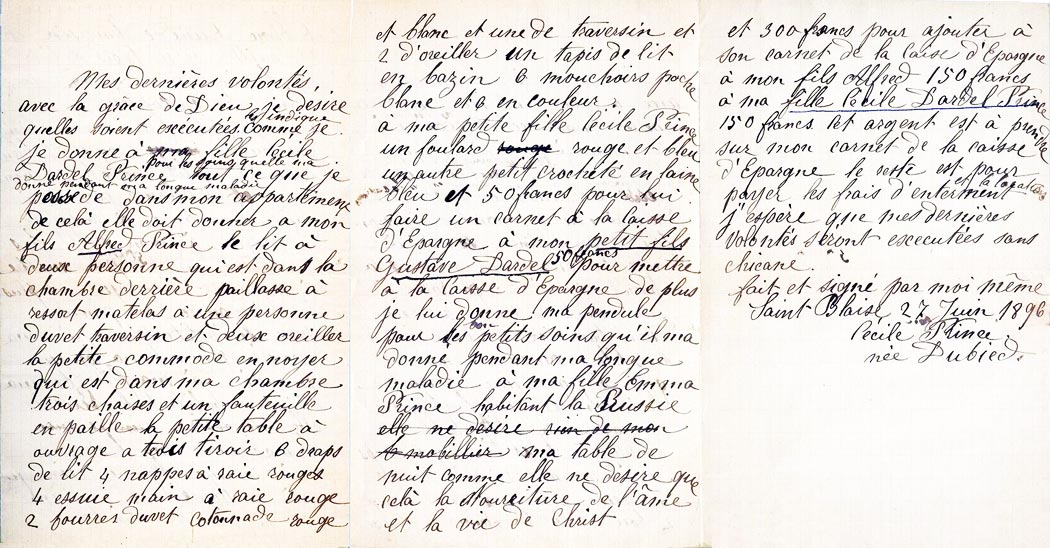 Mes dernières volontés,
avec la grâce de Dieu, je désire
quelles soient exécutées comme je l'indique
je donne à ma fille Cécile
Dardel Prince pour les soins quelle ma
donné pendant ma longue maladie tout ce que je
possède dans mon appartement
de celà elle doit donner a mon
fils Alfred Prince le lit à
deux personne qui est dans la
chambre derrière paillasse à
ressort matelas a une personne
duvet traversin et deux oreiller
la petite commode en noyer
qui est dans ma chambre
trois chaises et un fauteuille
en paille la petite table à
ouvrage a trois tiroir 6 draps
de lit 4 nappes à raie rouges
4 essuie main à raie rouge
2 fourres duvet cotonnade rouge
et blanc et une de traversin et
2 d'oreiller un tapis de lit
en bazin 6 mouchoirs poche
blanc et 6 en couleur.
à ma petite fille Cécile Prince
un foulard rouge rouge et bleu
un autre petit crocheté en laine
bleu et 50 francs pour lui
faire un carnet à la caisse
d'Epargne à mon petit fils
Gustave Dardel 50 francs pour mettre
à la caisse d'Epargne de plus
je lui donne ma pendule
pour les bon petits soins qu'il ma
donné pendant ma longue
maladie à ma fille Emma
Prince habitant la Russie
elle ne désire rien de mon
mobillier ma table de
nuit comme elle ne désire que
celà la Nourriture de l'âme
et la vie de Christ
et 300 francs pour ajouter à
son carnet de la caisse d'Epargne
à mon fils Alfred 150 francs
à ma fille Cécile Dardel Prince
150 francs cet argent est à prendre
sur mon carnet de la caisse
d'Epargne le reste est pour
payer les frais d'enterment et la location
j'espère que mes dernières
volontés séront execcutées sans
chicane.
fait et signé par moi même
Saint Blaise, 27 Juin 1896
Cécile Prince
née Dubied.